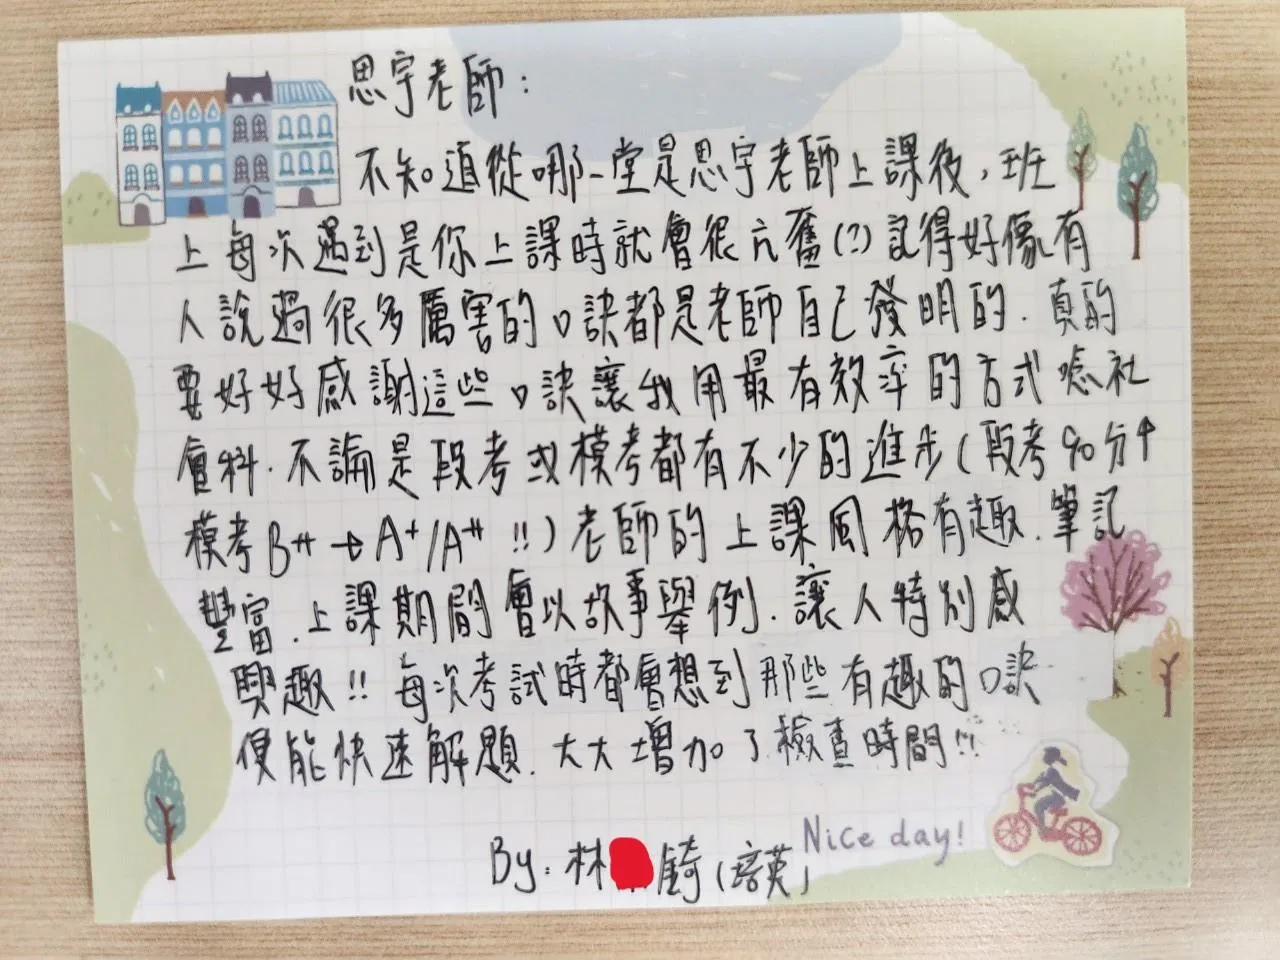 思宇老師：
不知道從哪一堂是思宇老師上課後，班
上每次遇到是你上課時就會很亢奮(?)記得好像有
人說過很多厲害的口訣都是老師自己發明的．真的
要好好感謝這些口訣讓我用最有效率的方式唸社
會科．不論是段考或模考都有不少的進步(段考90分↑
模考B++→A+/A++ !!)老師的上課風格有趣．筆記
豐富．上課期間會以故事舉例．讓人特別感
興趣!! 每次考試時都會想到那些有趣的口訣
便能快速解題．大大增加了檢查時間!!
By：林 錡(培英)
Nice day!